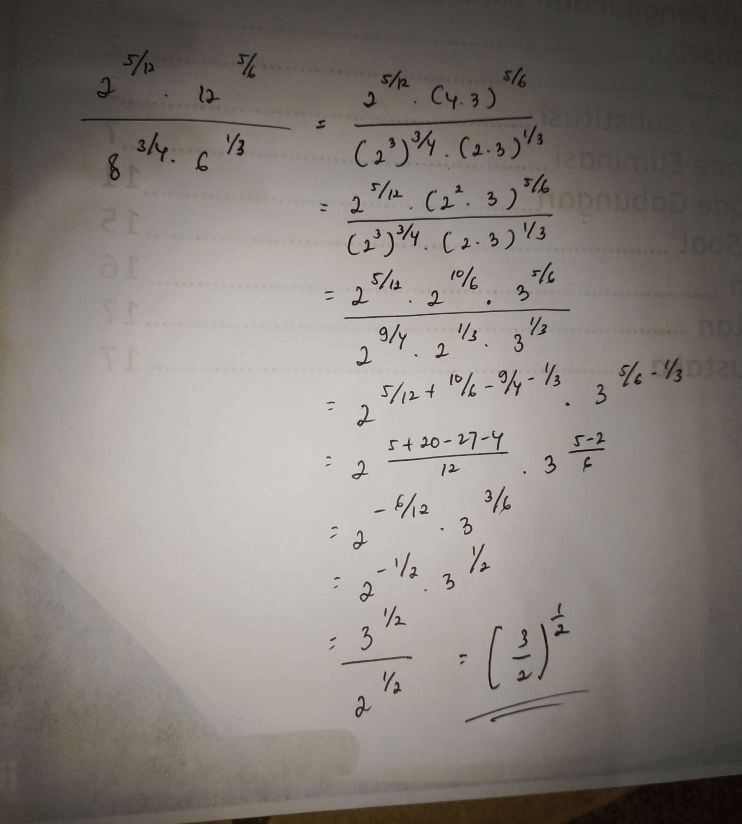 2^5/12 . 12^5/6 / 8^3/4 . 6^1/3 = 2^5/12 . (4.3)^5/6 / (2^3)^3/4 . (2.3)^1/3
= 2^5/12 . (2^2 . 3)^5/6 / (2^3)^3/4 . (2.3)^1/3
= 2^5/12 . 2^10/6 . 3^5/6 / 2^9/4 . 2^1/3 . 3^1/3
= 2^5/12 + 10/6 - 9/4 - 1/3 . 3^5/6 - 1/3
= 2^5+20-27-4/12 . 3^5-2/6
= 2^-6/12 . 3^3/6
= 2^-1/2 . 3^1/2
= 3^1/2 / 2^1/2 = (3/2)^1/2